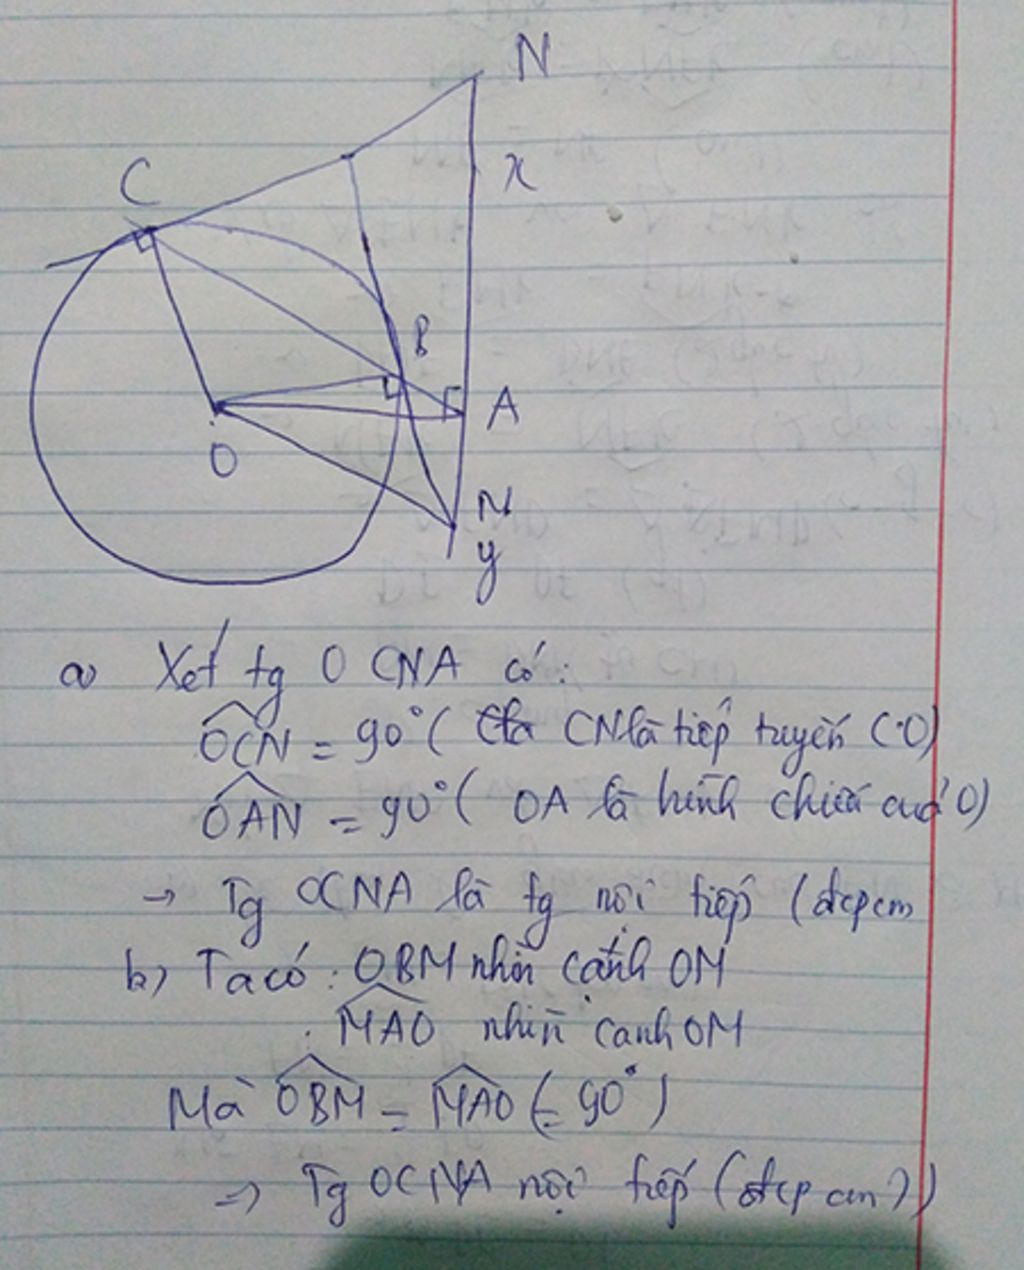 N
C
x
B
A
O
N
y
a) Xét tg OCNA có:
OCN = 90° ( CN là tiếp tuyến (O)
OAN = 90° ( OA là hình chiếu của O)
→ Tg OCNA là tg nội tiếp (đcpcm
b) Ta có: OBM nhìn cạnh OM
MAO nhìn cạnh OM
Mà OBM = MAO (= 90°)
=> Tg OCNA nội tiếp (đcpcm))